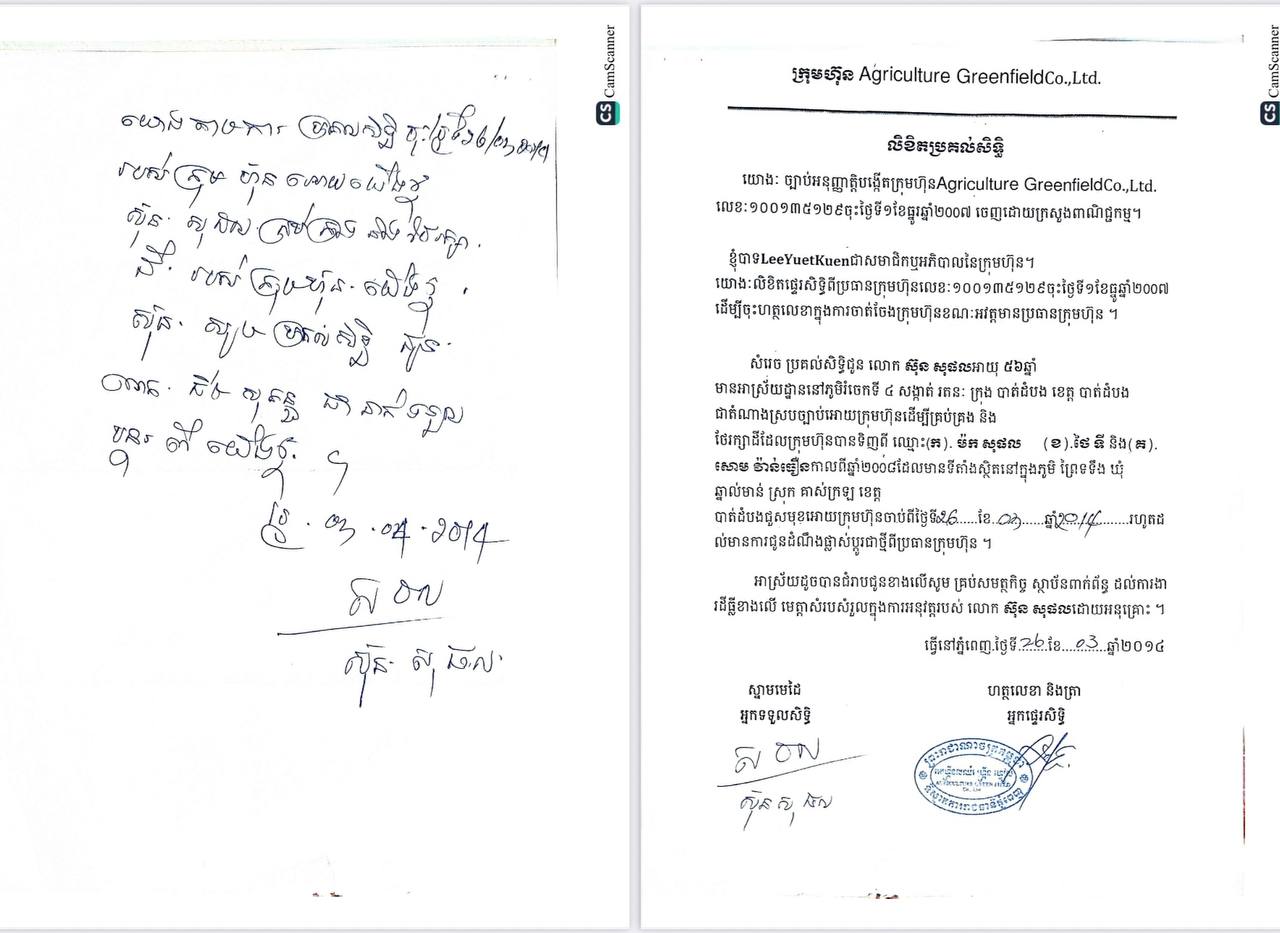 យោងតាមការ ប្រគល់សិទ្ធិ ចុះថ្ងៃទី២៦/០៣/២០១៤
របស់ក្រុមហ៊ុន អោយយើងខ្ញុំ
ស៊ុន សុផល គ្រប់គ្រង និង ថែរក្សា
ដី របស់ក្រុមហ៊ុន យើងខ្ញុំ
ស៊ុន សូមប្រគល់សិទ្ធិ ជូន
ជា អ្នកទទួល
បន្តពី យើងខ្ញុំ ។
ថ្ងៃ ០៣ . ០៤ . ២០១៤
ស៊ុន សុផល
CS CamScanner
ក្រុមហ៊ុន Agriculture GreenfieldCo.,Ltd.
លិខិតប្រគល់សិទ្ធិ
យោង: ច្បាប់អនុញ្ញាត្តិបង្កើតក្រុមហ៊ុនAgriculture GreenfieldCo.,Ltd.
លេខ:១០០១៣៥១២៩ចុះថ្ងៃទី១ខែធ្នូរឆ្នាំ២០០៧ ចេញដោយក្រសួងពាណិជ្ជកម្ម។
ខ្ញុំបាទLeeYuetKuenជាសមាជិកឬអភិបាលនៃក្រុមហ៊ុន។
យោង:លិខិតផ្ទេរសិទ្ធិពីប្រធានក្រុមហ៊ុនលេខ:១០០១៣៥១២៩ចុះថ្ងៃទី១ខែធ្នូឆ្នាំ២០០៧
ដើម្បីចុះហត្ថលេខាក្នុងការចាត់ចែងក្រុមហ៊ុនខណ:អវត្តមានប្រធានក្រុមហ៊ុន ។
សំរេច ប្រគល់សិទ្ធិជូន លោក ស៊ុន សុផលអាយុ ៥៦ឆ្នាំ
មានអាស្រ័យដ្ឋាននៅភូមិរំចេកទី ៤ សង្កាត់ រតន: ក្រុង បាត់ដំបង ខេត្ត បាត់ដំបង
ជាតំណាងស្របច្បាប់អោយក្រុមហ៊ុនដើម្បីគ្រប់គ្រង និង
ថែរក្សាដីដែលក្រុមហ៊ុនបានទិញពី ឈ្មោះ(ក). ម៉ក សុផល (ខ).ថៃ ទី និង(គ).
សោម វ៉ាន់ធឿនកាលពីឆ្នាំ២០០៨ដែលមានទីតាំងស្ថិតនៅក្នុងភូមិ ព្រៃទទឹង ឃុំ
ឆ្នាល់មាន់ ស្រុក គាស់ក្រឡ ខេត្ត
បាត់ដំបងជួសមុខអោយក្រុមហ៊ុនចាប់ពីថ្ងៃទី26......ខែ.03......ឆ្នាំ2014.........រហូតដ
ល់មានការជូនដំណឹងផ្លាស់ប្តូរជាថ្មីពីប្រធានក្រុមហ៊ុន ។
អាស្រ័យដូចបានជំរាបជូនខាងលើសូម គ្រប់សមត្ថកិច្ច ស្ថាប័នពាក់ព័ន្ធ ដល់ការងា
រដីធ្លីខាងលើ មេត្តាសំរបសំរួលក្នុងការអនុវត្តរបស់ លោក ស៊ុន សុផលដោយអនុគ្រោះ ។
ធ្វើនៅភ្នំពេញ.ថ្ងៃទី.26.ខែ....03....ឆ្នាំ២០១៤
ស្នាមមេដៃ ហត្ថលេខា និងត្រា
អ្នកទទួលសិទ្ធិ អ្នកផ្ទេរសិទ្ធិ
ព្រះរាជាណាចក្រកម្ពុជា
ស៊ុន សុផល
CS CamScanner